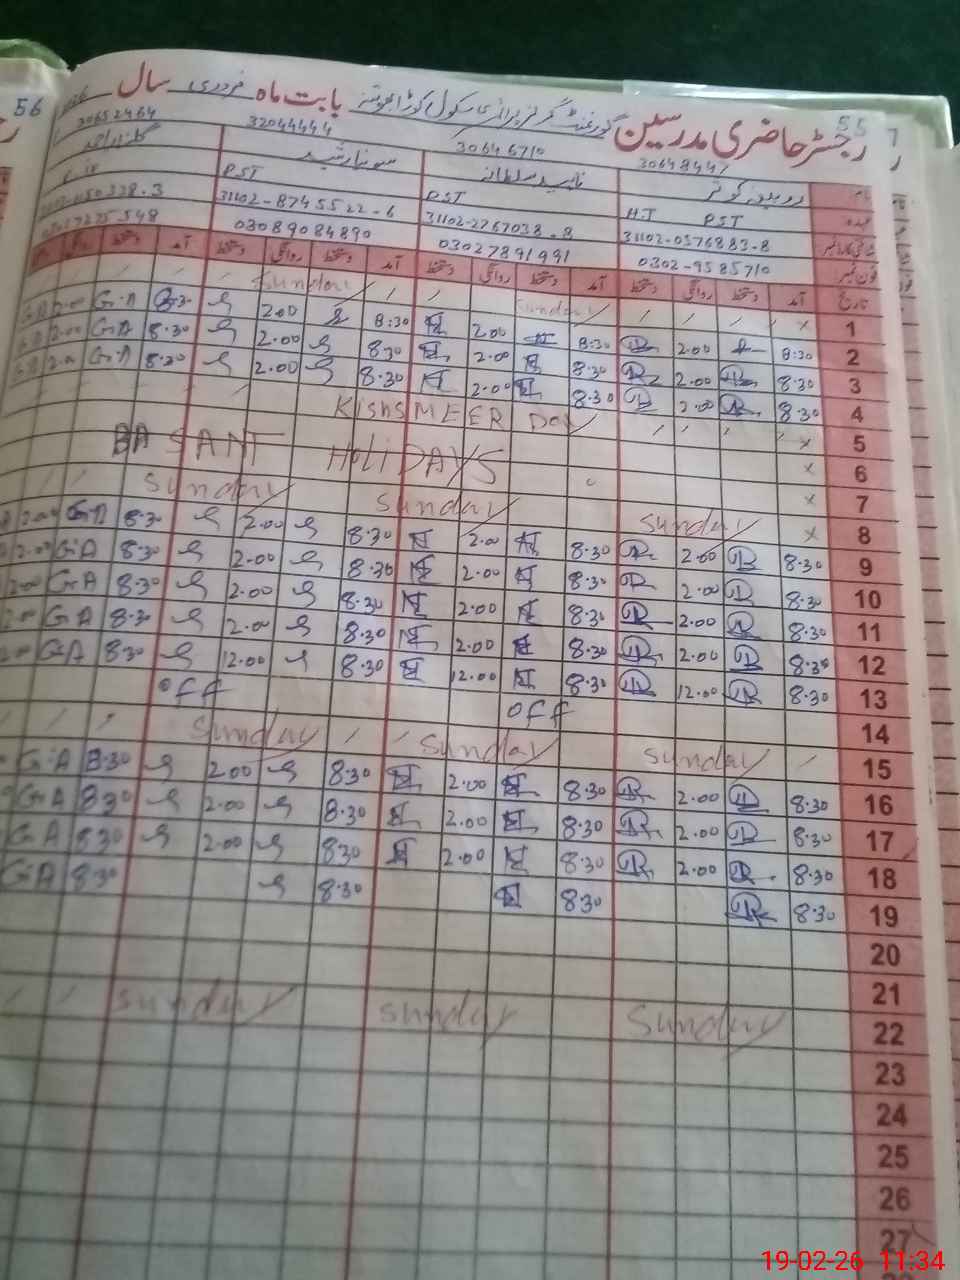 56 55
رجسٹر حاضری مدرسین گورنمنٹ گرلز پرائمری سکول بابت ماہ فروری سال
30648447 30646710 32044444 30652464
روبینہ کوثر ناہید سلطانہ سونیا رشید
H.T PST PST PST
31102-0376883-8 31102-2767038-8 31102-8745522-6
0302-9585710 03027891991 03089084890
تاریخ آمد دستخط روانگی دستخط آمد دستخط روانگی دستخط آمد دستخط روانگی دستخط آمد دستخط روانگی
1 × Sunday Sunday
2 8:30 2.00 8:30 2.00 8:30 2.00 8.30 G.A 2.00
3 8:30 2.00 8.30 2.00 8.30 2.00 8.30 G.A 2.00
4 8.30 2.00 8.30 2.00 8.30 2.00 8.30 G.A
5 × KISHSMEER Day
6 × BASANT HoliDAYS
7 ×
8 × Sunday Sunday Sunday
9 8.30 2.00 8.30 2.00 8.30 2.00 8.30 G.A 2.00
10 8.30 2.00 8.30 2.00 8.30 2.00 8.30 G.A 2.00
11 8.30 2.00 8.30 2.00 8.30 2.00 8.30 G.A 2.00
12 8.30 2.00 8.30 2.00 8.30 2.00 8.30 G.A 2.00
13 8.30 12.00 8.30 12.00 8.30 12.00 8.30 G.A
14 off off
15 Sunday Sunday Sunday
16 8.30 2.00 8.30 2.00 8.30 2.00 8.30 G.A
17 8.30 2.00 8.30 2.00 8.30 2.00 8.30 G.A
18 8.30 2.00 8.30 2.00 830 2.00 8.30 G.A
19 8.30 8.30 8.30 8.30 G.A
20
21
22 Sunday Sunday Sunday
23
24
25
26
27
19-02-26 11:34